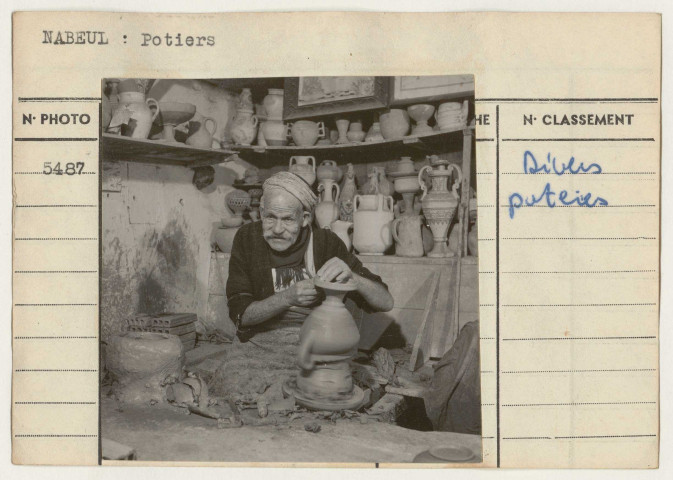 NABEUL : Potiers
N· PHOTO
HE
N· CLASSEMENT
5487
Divers
poteries